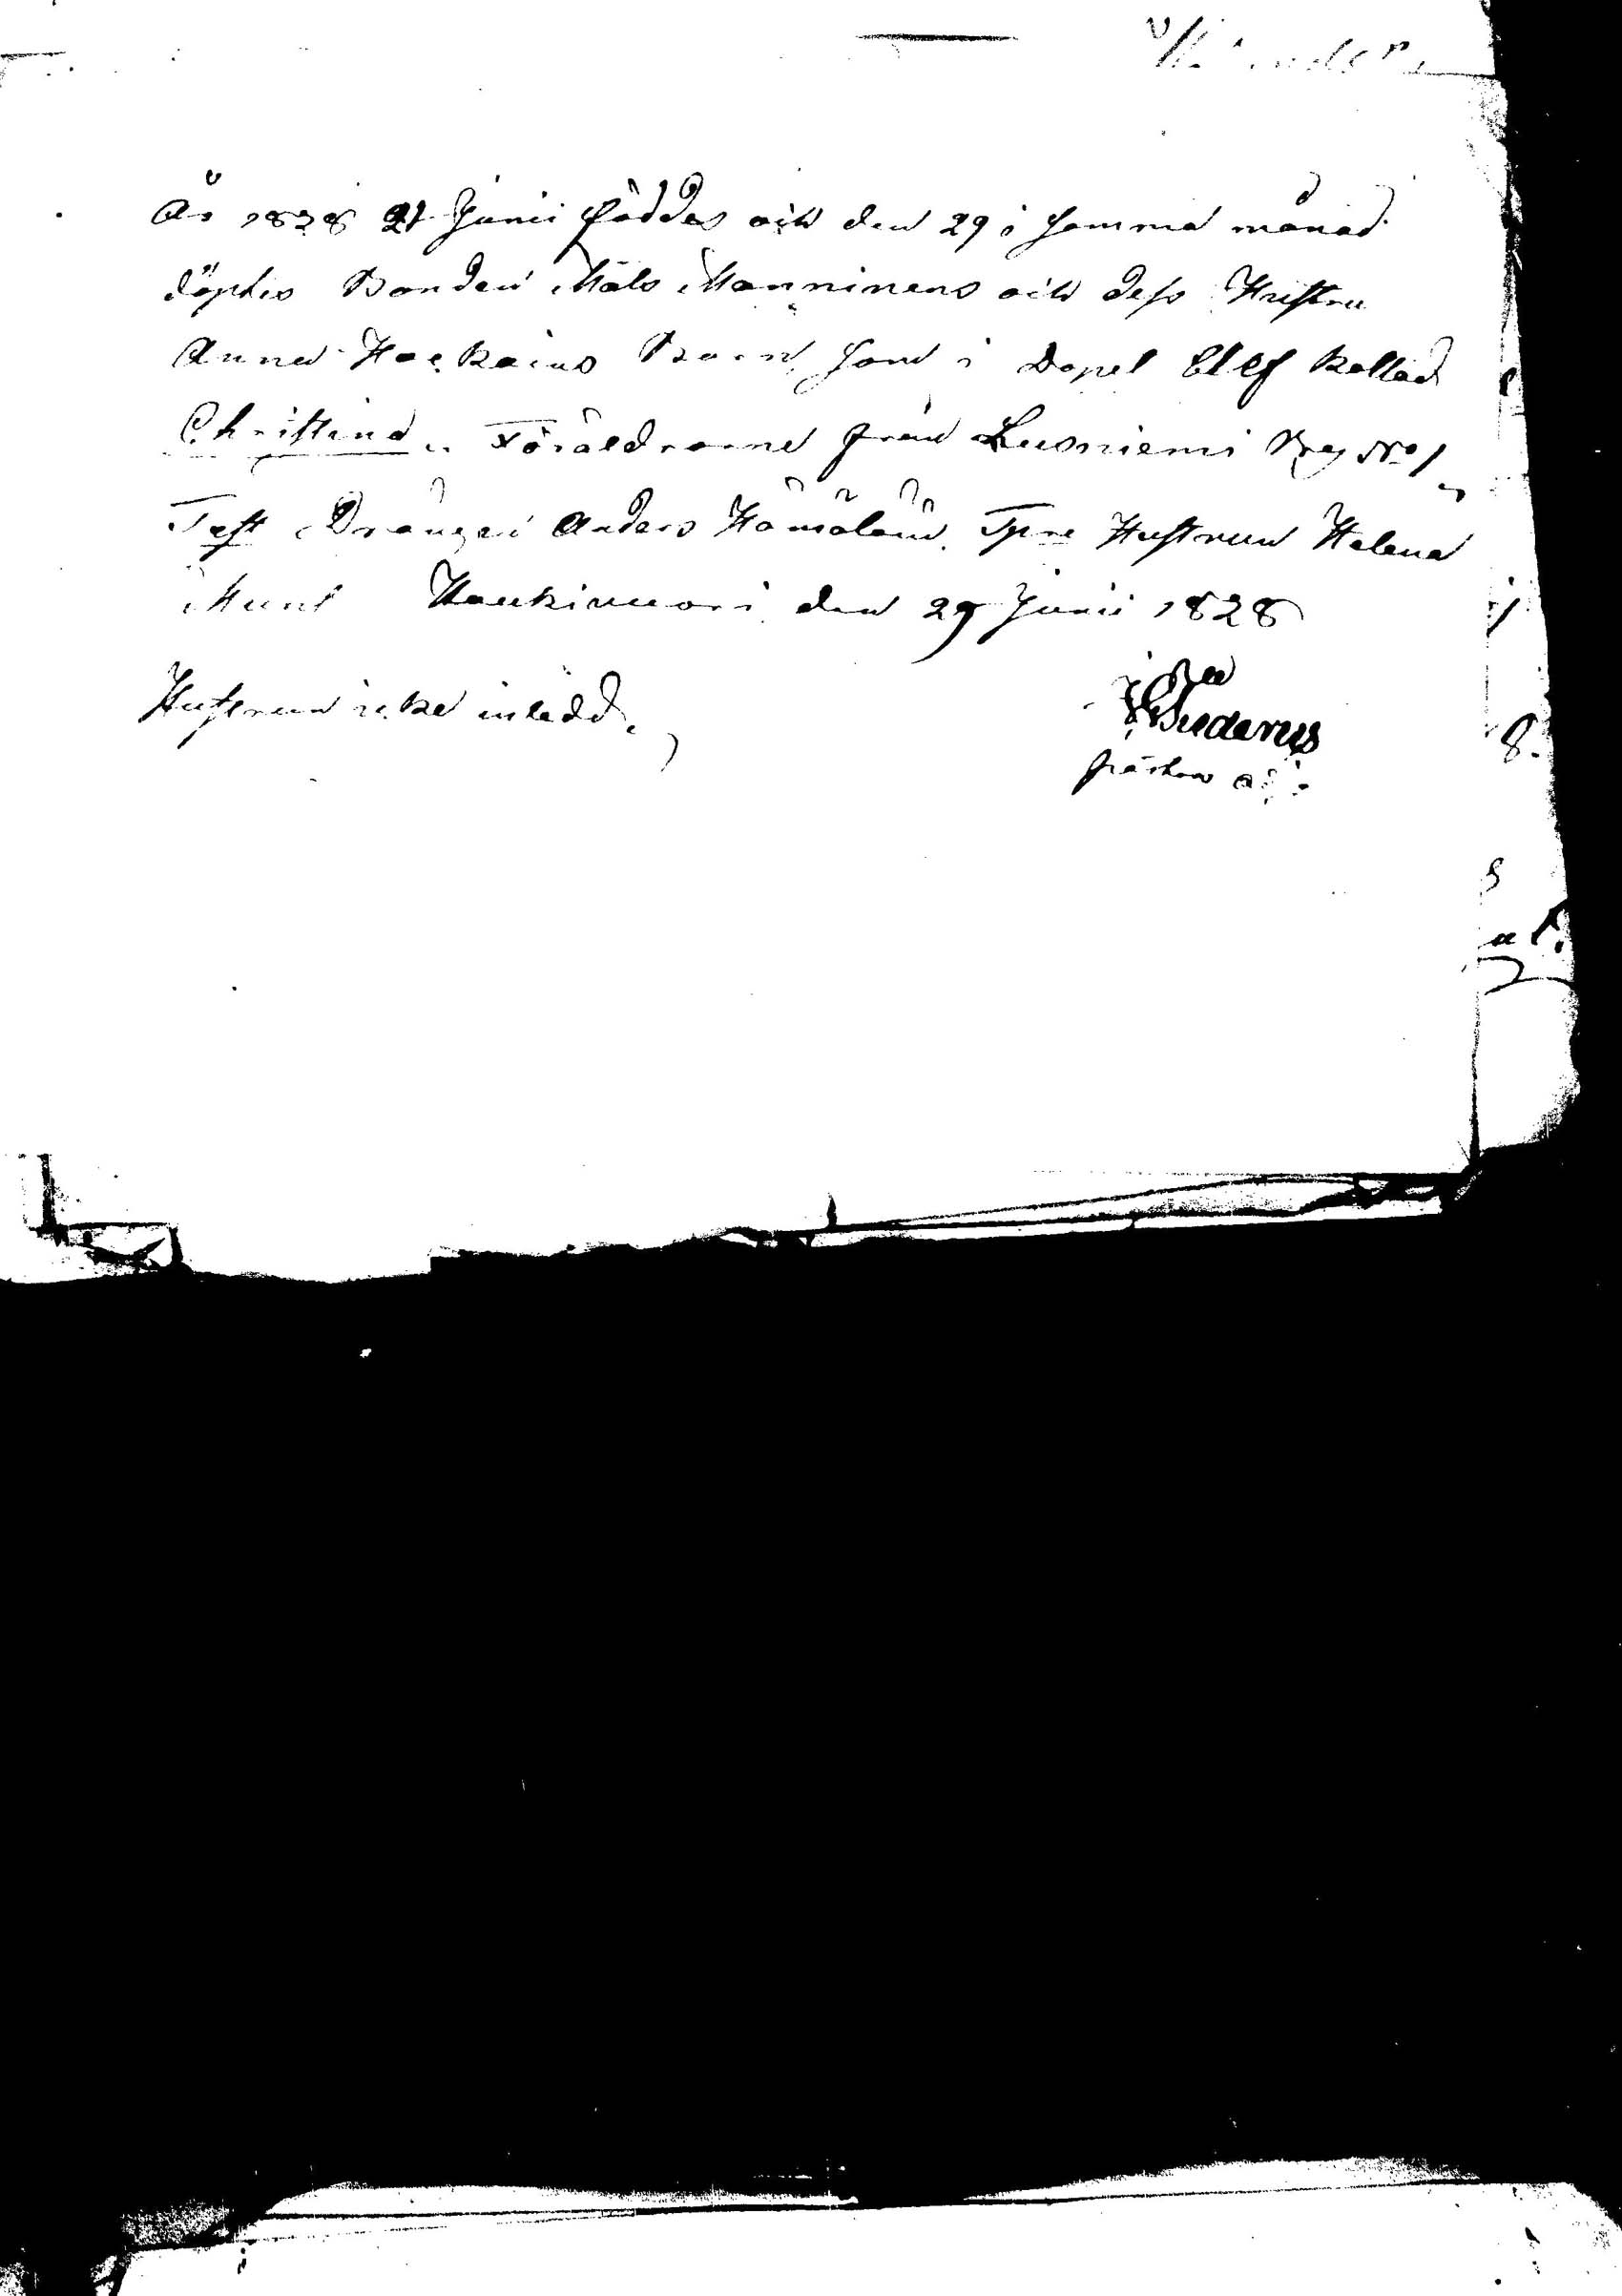 År 1828 21 Junii föddes och den 29 i samma månad
döptes Bonden Mats Manninens och dess Hustru
Anna Haekains Barn, som i Dopet blef kallad
Christina. Föräldrarne från Lusniemi By No 1
Test Drängen Anders Hämäläin. Tpre Hustrun Helena
Munt Haukivuori den 29 Junii 1828
Hustrun icke inledd.